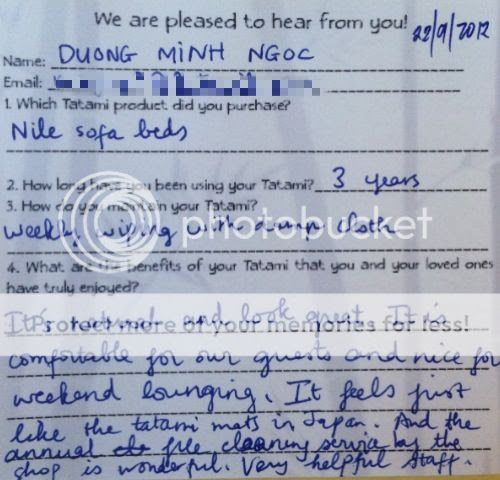 We are pleased to hear from you!
22/9/2012
Name: DUONG MINH NGOC
Email:
1. Which Tatami product did you purchase?
Nile sofa beds
2. How long have you been using your Tatami? 3 years
3. How do you maintain your Tatami?
weekly wiping with damp cloth
photobucket
4. What are the benefits of your Tatami that you and your loved ones
have truly enjoyed?
It's natural and look great. It is
Protect more of your memories for less!
comfortable for our guests and nice for
weekend lounging. It feels just
like the tatami mats in Japan. And the
annual free cleaning service by the
shop is wonderful. Very helpful staff.